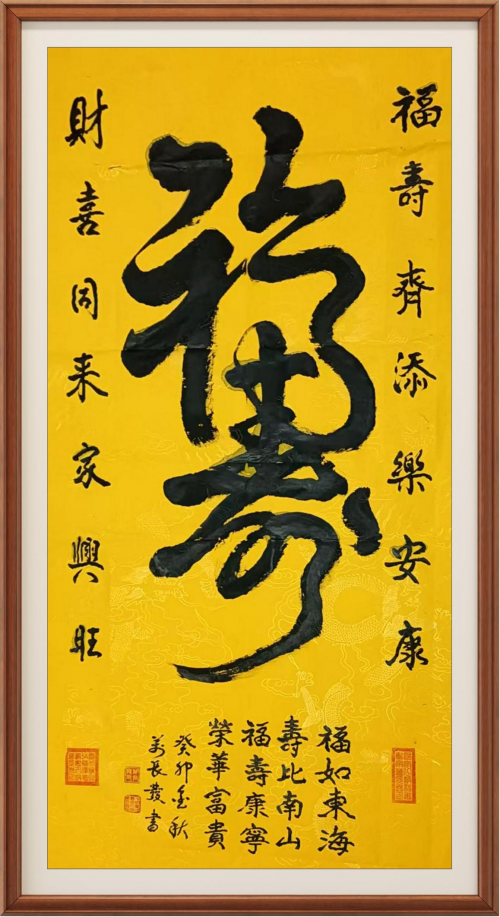 福壽齊添樂安康
福壽
財喜同来家興旺
福如東海
壽比南山
福壽康寧
榮華富貴
癸卯金秋
萬長發書